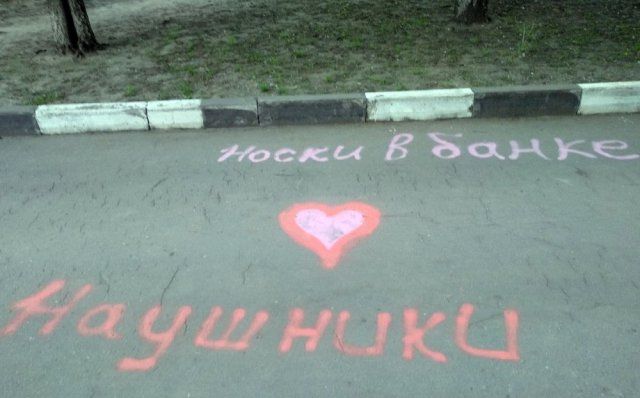 носки в банке
Наушники